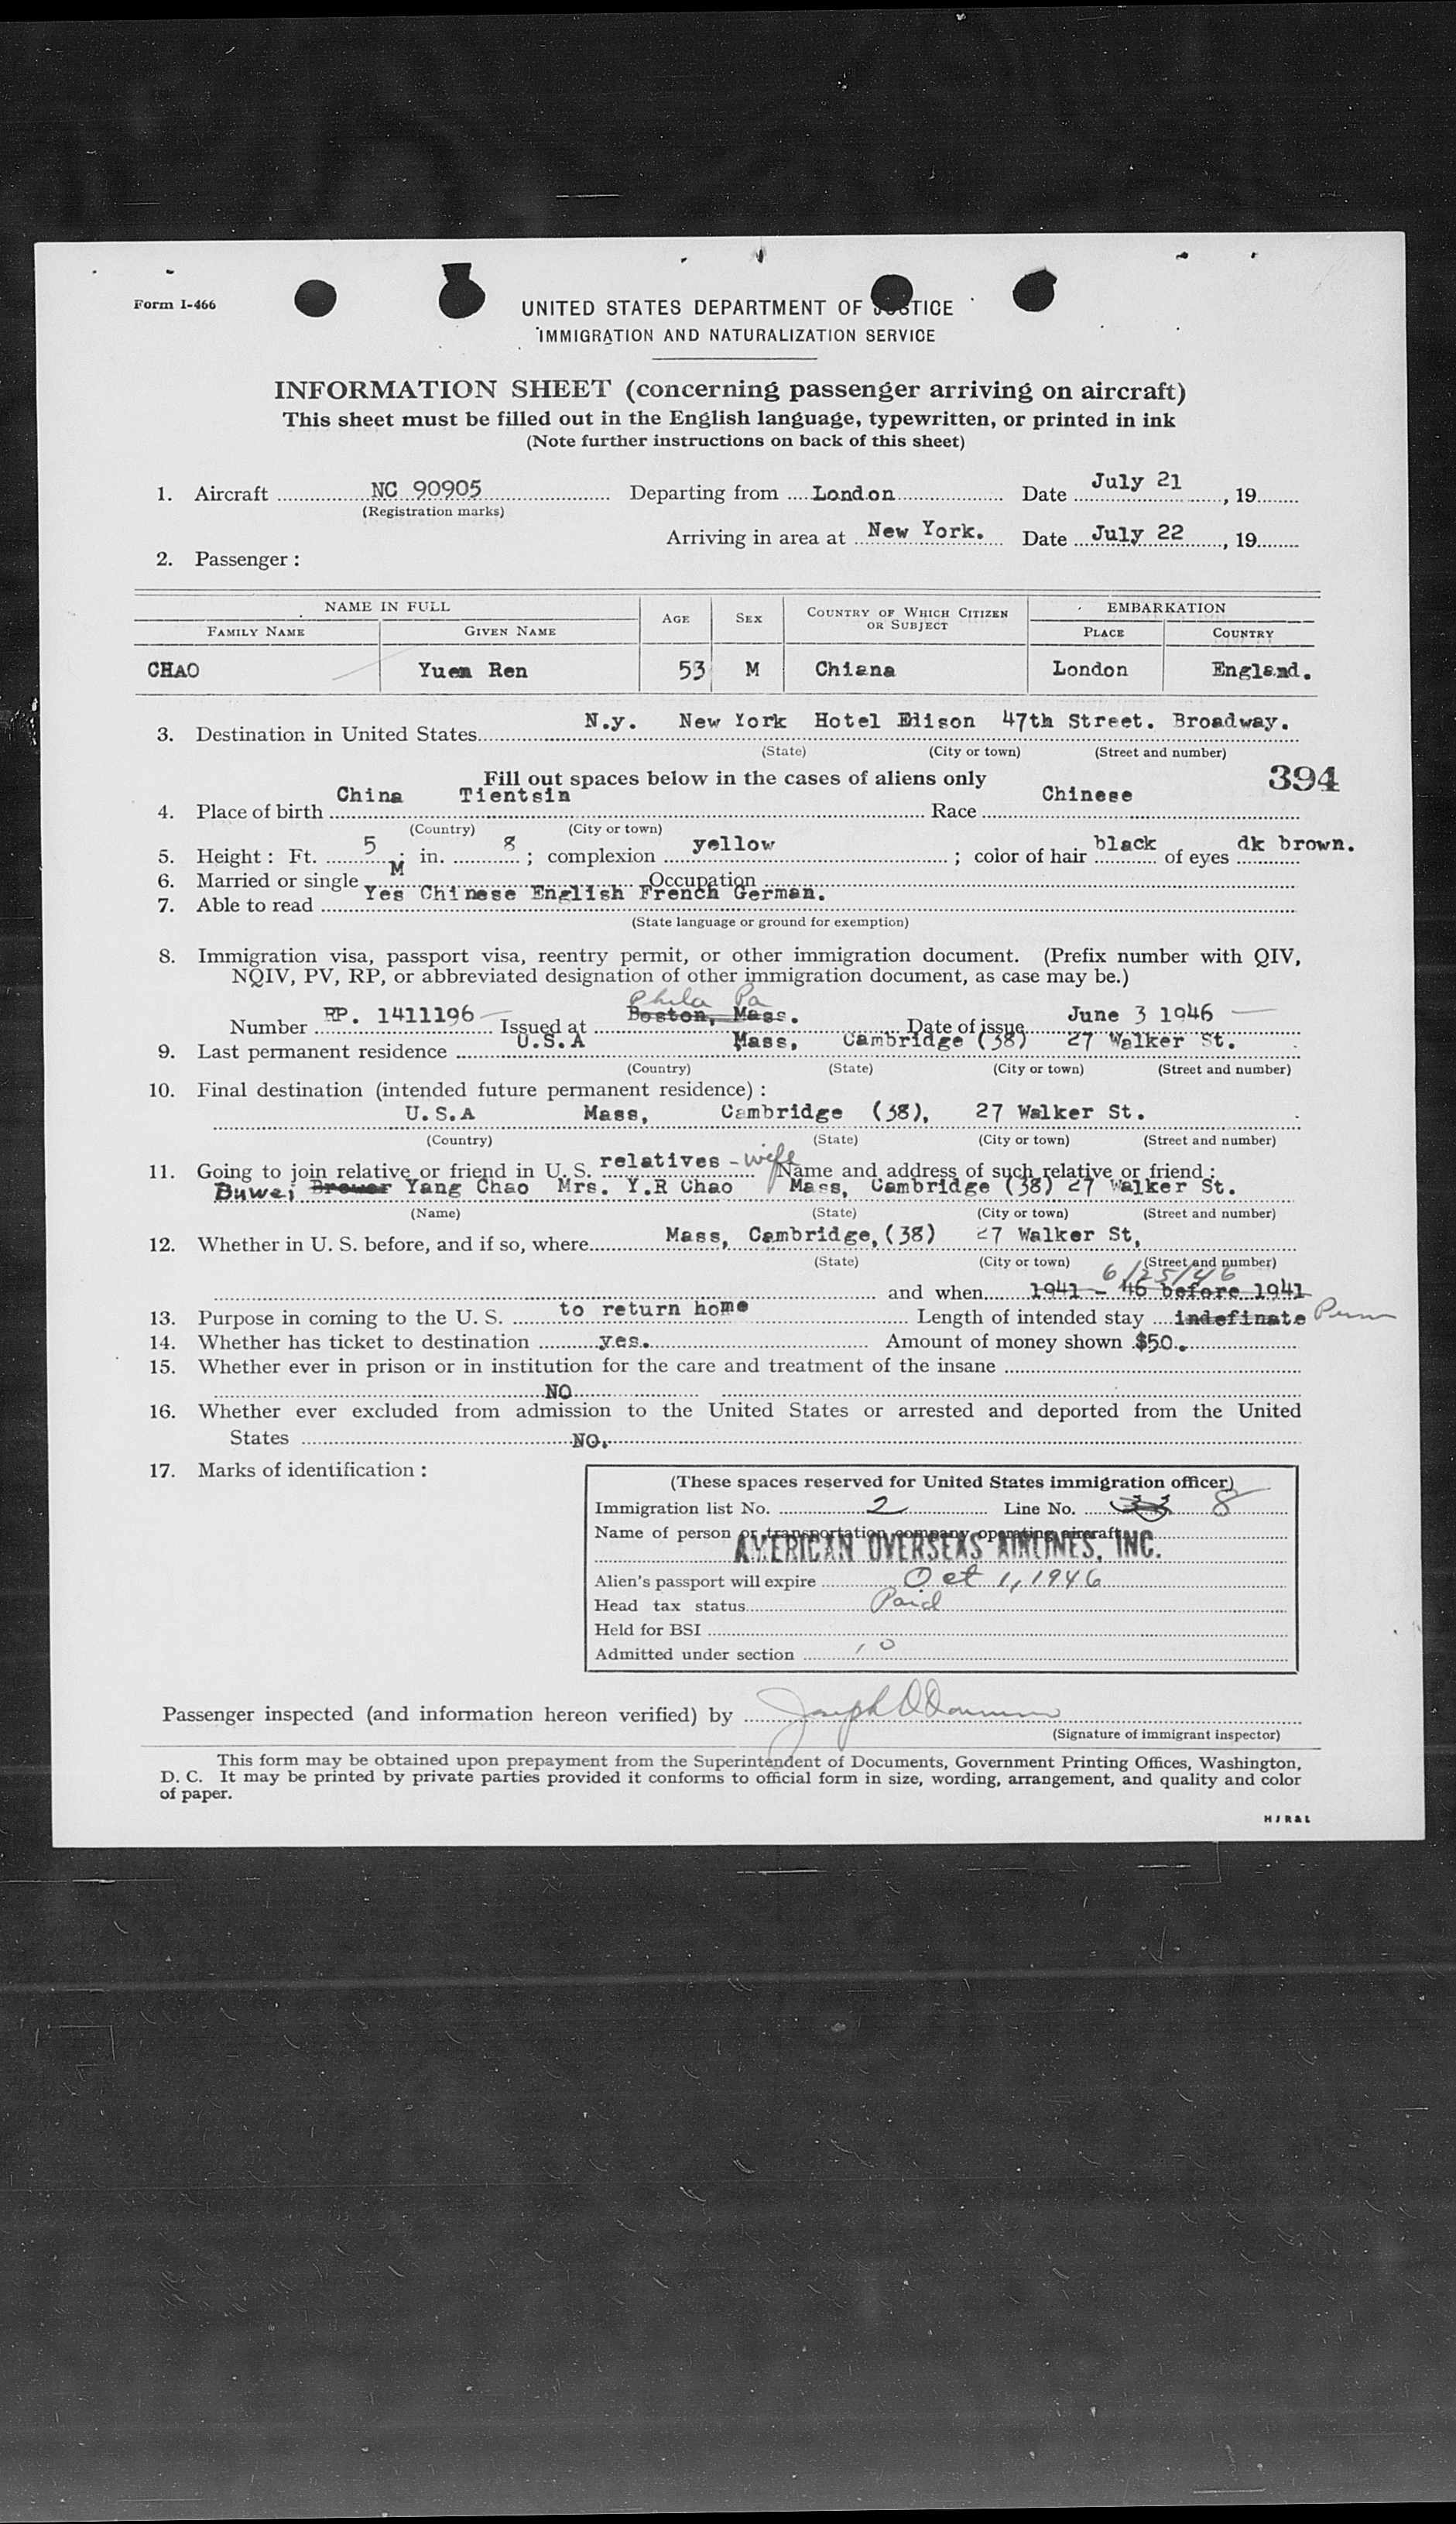 Form I-466
UNITED STATES DEPARTMENT OF JUSTICE
IMMIGRATION AND NATURALIZATION SERVICE
INFORMATION SHEET (concerning passenger arriving on aircraft)
This sheet must be filled out in the English language, typewritten, or printed in ink
(Note further instructions on back of this sheet)
1. Aircraft NC 90905 Departing from London Date July 21, 19
(Registration marks)
Arriving in area at New York. Date July 22, 19
2. Passenger:
NAME IN FULL AGE SEX COUNTRY OF WHICH CITIZEN OR SUBJECT EMBARKATION
FAMILY NAME GIVEN NAME PLACE COUNTRY
CHAO Yuen Ren 53 M Chiana London England.
3. Destination in United States N.y. New York Hotel Edison 47th Street. Broadway.
(State) (City or town) (Street and number)
Fill out spaces below in the cases of aliens only 394
4. Place of birth China Tientsin Race Chinese
(Country) (City or town)
5. Height: Ft. 5; in. 8; complexion yellow; color of hair black of eyes dk brown.
6. Married or single M Occupation
7. Able to read Yes Chinese English French German.
(State language or ground for exemption)
8. Immigration visa, passport visa, reentry permit, or other immigration document. (Prefix number with QIV,
NQIV, PV, RP, or abbreviated designation of other immigration document, as case may be.)
Phila Pa
Number RP. 1411196 Issued at Boston, Mass. Date of issue June 3 1946
9. Last permanent residence U.S.A Mass, Cambridge (38) 27 Walker St.
(Country) (State) (City or town) (Street and number)
10. Final destination (intended future permanent residence):
U.S.A Mass, Cambridge (38), 27 Walker St.
(Country) (State) (City or town) (Street and number)
11. Going to join relative or friend in U. S. relatives - wife Name and address of such relative or friend:
Buwei Brewer Yang Chao Mrs. Y.R Chao Mass, Cambridge (38) 27 Walker St.
(Name) (State) (City or town) (Street and number)
12. Whether in U. S. before, and if so, where Mass, Cambridge, (38) 27 Walker St,
(State) (City or town) (Street and number)
6/25/46
and when 1941 - 46 before 1941
13. Purpose in coming to the U. S. to return home Length of intended stay indefinate Perm
14. Whether has ticket to destination yes. Amount of money shown $50.
15. Whether ever in prison or in institution for the care and treatment of the insane
NO
16. Whether ever excluded from admission to the United States or arrested and deported from the United
States NO.
17. Marks of identification:
(These spaces reserved for United States immigration officer)
Immigration list No. 2 Line No. 33 8
Name of person or transportation company operating aircraft
AMERICAN OVERSEAS AIRLINES, INC.
Alien's passport will expire Oct 1, 1946
Head tax status Paid
Held for BSI
Admitted under section 10
Passenger inspected (and information hereon verified) by Joseph
(Signature of immigrant inspector)
This form may be obtained upon prepayment from the Superintendent of Documents, Government Printing Offices, Washington,
D. C. It may be printed by private parties provided it conforms to official form in size, wording, arrangement, and quality and color
of paper.
H J R & L